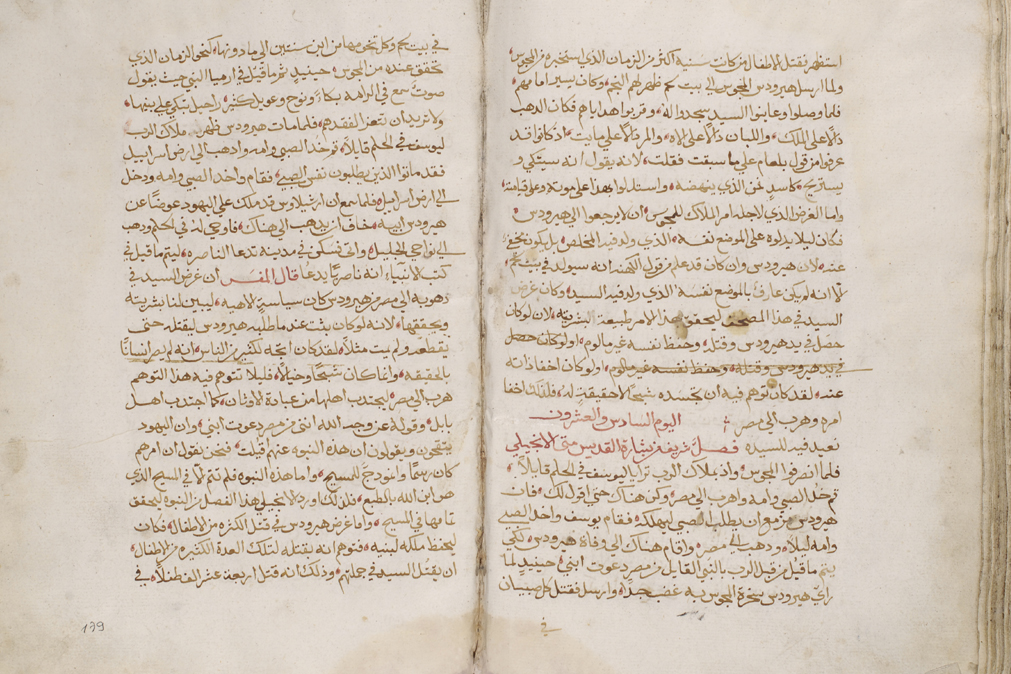 استظهر بقتل الاطفال من كانت سنيه اكثر من الزمان الذي استخبره من المجوس
ولما ارسل هيرودس المجوس الى بيت لحم ظهر لهم النجم وكان يسير امامهم
فلما وصلوا وعاينوا السيد سجدوا له وقربوا هداياهم فكان الدهب
دالا على الملك واللبان دالا على الاله والمر دالا على مايت اذ كانوا قد
عرفوا من قول بلعام على ما سبقت فقلت لانه يقول انه سيتكي و
يستريح كاسد فمن الذي ينهضه واستدلوا بهذا على موته وعلى قيامته
واما الغرض الذي لاجله امر الملاك للمجوس ان لا يرجعوا الى هيرودس
فكان ليلا يدلوه على الموضع نفسه الذي ولد فيه المخلص بل يكون مخفي
عنه لان هيرودس وان كان قد علم من قول الكهنه انه سيولد في بيت لحم
الا انه لم يكن عارف بالموضع نفسه الذي ولد فيه السيد وكان غرض
السيد في هذا ليحقق بهذا الامر طبيعة البشريه لان لو كان
حصل في يد هيرودس وقتله وحفظ نفسه غير مالوم اولو كان حصل
في يد هيرودس وقتله وحفظ نفسه غير مالوم اولو كان اخفا ذاته
عنه لقد كان توهم فيه ان تجسده شبحا لا حقيقة له فلذلك اخفا
امره وهرب الى مصر اليوم السادس والعشرون
نعيد فيه للسيده فصل شريف من بشارة القديس متى الانجيلي
فلما انصرفوا المجوس واذ بملاك الرب ترايا ليوسف في الحلم قايلا
قم خذ الصبي وامه واهرب الى مصر وكن هناك حتى اقول لك فان
هيرودس مزمع ان يطلب الصبي ليهلكه فقام يوسف واخذ الصبي
وامه ليلا ودهب الى مصر واقام هناك الى وفاة هيرودس لكي
يتم ما قيل من قبل الرب بالنبي القايل من مصر دعوت ابني حينيد لما
راي هيرودس سخرة المجوس به غضب جدا وارسل فقتل كل صبيان
في
في بيت لحم وكل تخومها من ابن سنتين الى ما دونها كنحو الزمان الذي
تحقق عنده من المجوس حينيد تم ما قيل في ارميا النبي حيث يقول
صوت سمع في الرامه بكاء ونوح وعويل كثير راحيل تبكي على بنيها
ولا تريد ان تتعزا لفقدهم فلما مات هيرودس ظهر ملاك الرب
ليوسف في الحلم قايلا قم خذ الصبي وامه وادهب الى ارض اسراييل
فقد ماتوا الذين يطلبون نفس الصبي فقام واخذ الصبي وامه ودخل
الى ارض اسراييل فلما سمع ان ارشيلاوس قد ملك على اليهود عوضا عن
هيرودس ابيه خاف ان يدهب الى هناك فاوحي له في الحلم ودهب
الى نواحي الجليل واتى فسكن في مدينة تدعا الناصره ليتم ما قيل في
كتب الانبياء انه ناصريا يدعا قال المفسر ان غرض السيد في
دهوبه الى مصر من هيرودس كان سياسة لاهيه ليبين لنا بشريته
ويحققها لانه لو كان يثبت عند ما طلبه هيرودس ليقتله حتى
ينقطع ولم يمت مثلا لقد كان اتجه لكثير من الناس انه لم يصر انسانا
بالحقيقه وانما كان شبحا وخيالا فليلا تتوهم فيه هذا التوهم
هرب الى مصر ليجتدب اهلها من عبادة الاوثان كما اجتدب اهل
بابل وقوله عن وجه الله انني من مصر دعوت ابني وان اليهود
يتقحون ويقولون ان هذه النبوه عنهم قيلت فنحن نقول ان امرهم
كان رسما وانمودج للمسيح واما هذه النبوه فلم تتم الا في المسيح الذي
هو ابن الله بالطبع فلذلك اورد الانجيل هذا الفصل من النبوه ليحقق
تمامها في المسيح واما غرض هيرودس في قتل الكثره من الاطفال فكان
ليحفظ ملكه لبنيه فتوهم انه بقتله لتلك العدة الكثيره من الاطفال
ان يقتل السيد في جملتهم وذلك انه قتل اربعة عشر الف طفلا في
139